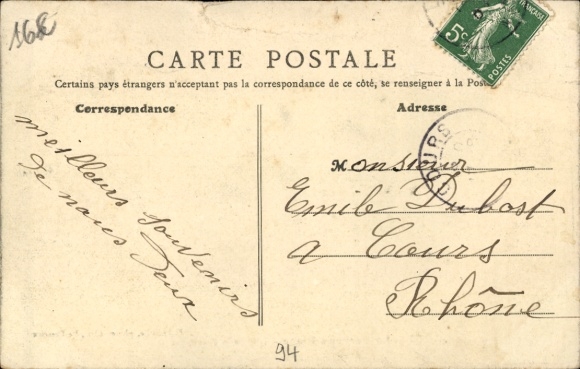 168
CARTE POSTALE
Certains pays étrangers n'acceptant pas la correspondance de ce côté, se renseigner à la Poste
Correspondance
Adresse
meilleurs souvenirs
de nous Deux
Monsieur
Emile Dubost
a Cours
Rhône
COURS
5c
FRANÇAISE
POSTES
94